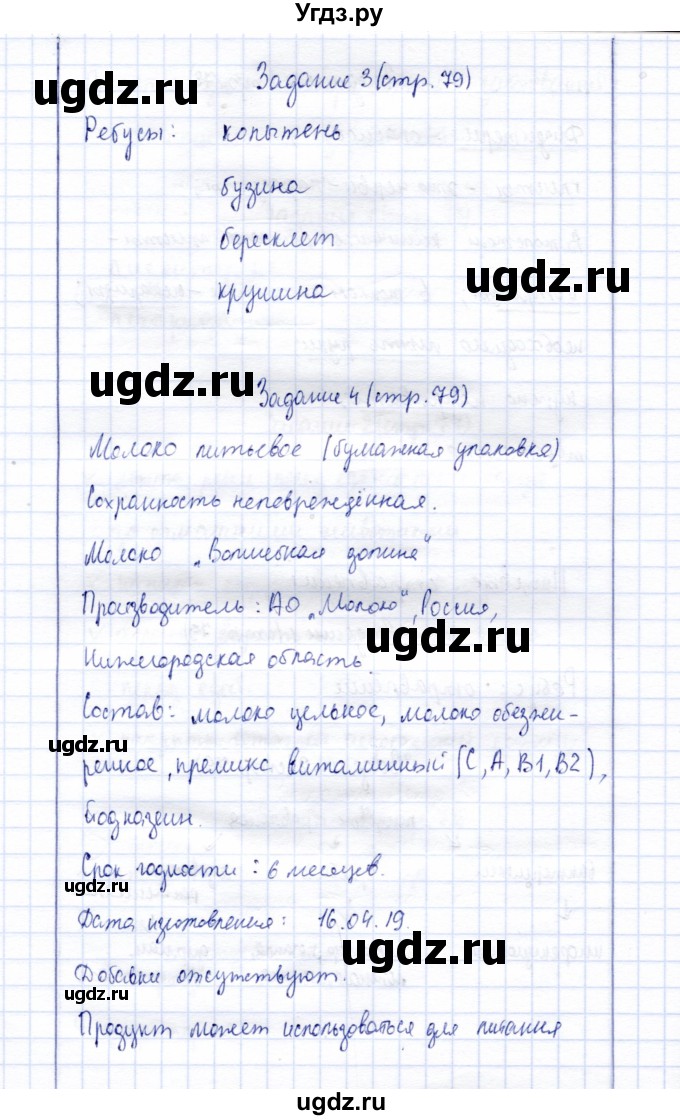 Угдз.ру
ugdz.ru
ugdz.ru
Задание 3 (стр. 79)
Ребусы: копытень
бузина
бересклет
ugdz.ru
крушина
ugdz.ru
Задание 4 (стр. 79)
Молоко питьевое (бумажная упаковка)
Сохранность неповреждённая.
Молоко „Волшебная долина"
Производитель: АО „Молоко", Россия,
ugdz.ru
Нижегородская область.
Состав: молоко цельное, молоко обезжи-
ugdz.ru
ренное, премикс витаминный (C, A, B1, B2),
йодказеин.
Срок годности: 6 месяцев.
ugdz.ru
Дата изготовления: 16.04.19.
ugdz.ru
Добавки отсутствуют.
ugdz.ru
Продукт может использоваться для питания
ugdz.ru